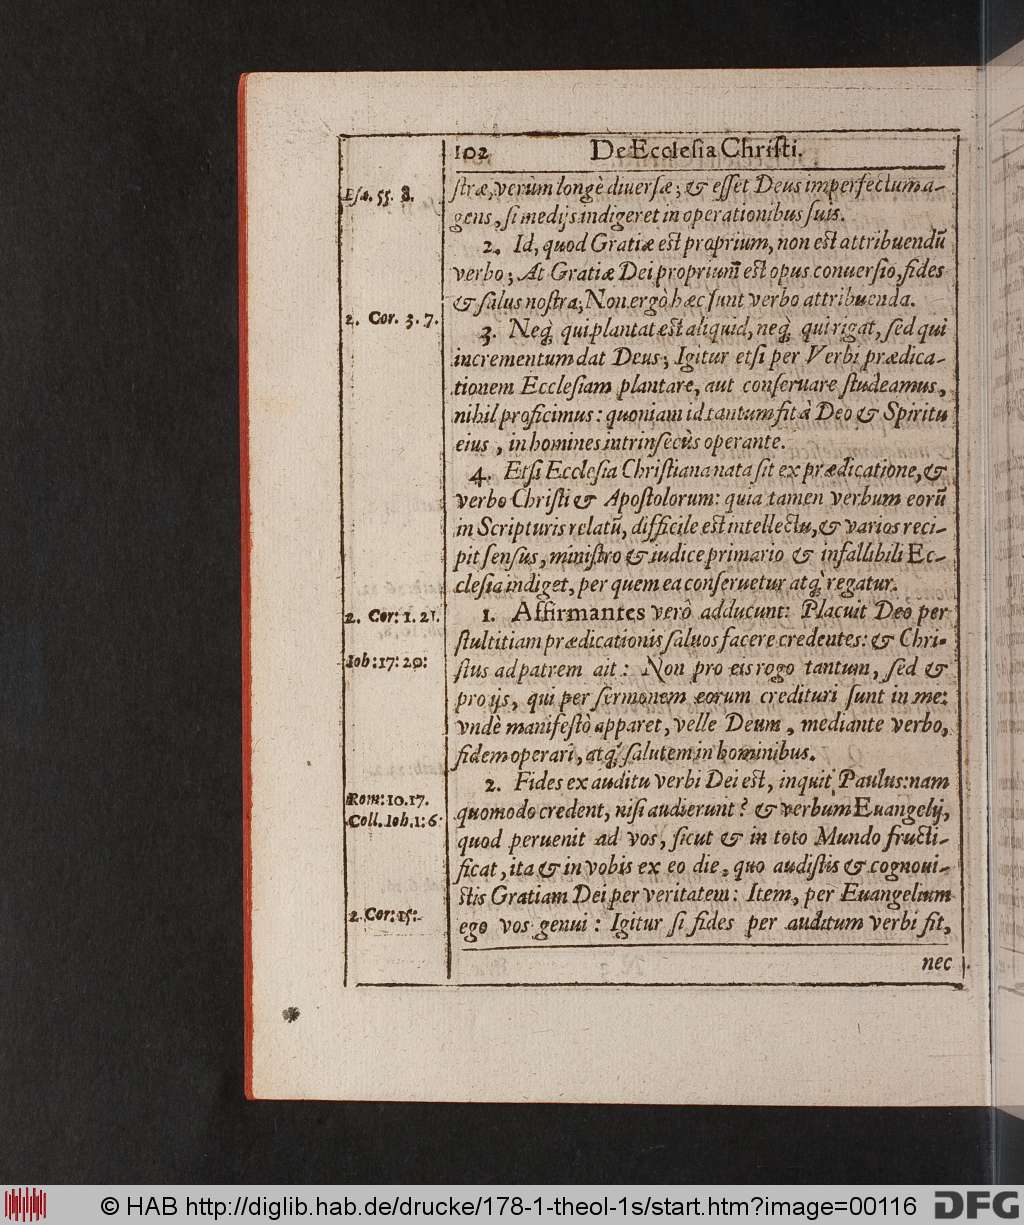 102 De Ecclesia Christi.
Esa. 55. 8.
stræ, verùm longè diuersæ; & esset Deus imperfectum a-
gens, si medijs indigeret in operationibus suis.
2. Id, quod Gratiæ est proprium, non est attribuendũ
verbo; At Gratiæ Dei proprium est opus conuersio, fides
& salus nostra; Non ergò hæc sunt verbo attribuenda.
2. Cor. 3. 7.
3. Neq; qui plantat est aliquid, neq; qui rigat, sed qui
incrementum dat Deus; Igitur etsi per Verbi prædica-
tionem Ecclesiam plantare, aut conseruare studeamus,
nihil proficimus: quoniam id tantum fit à Deo & Spiritu
eius, in homines intrinsecùs operante.
4. Etsi Ecclesia Christiana nata sit ex prædicatione, &
verbo Christi & Apostolorum: quia tamen verbum eorũ
in Scripturis relatũ, difficile est intellectu, & varios reci-
pit sensus, ministro & iudice primario & infallibili Ec-
clesia indiget, per quem ea conseruetur atq; regatur.
2. Cor: 1. 21.
1. Affirmantes verò adducunt: Placuit Deo per
stultitiam prædicationis saluos facere credentes: & Chri-
Ioh: 17: 20:
stus ad patrem ait: Non pro eis rogo tantum, sed &
pro ijs, qui per sermonem eorum credituri sunt in me:
vndè manifestò apparet, velle Deum, mediante verbo,
fidem operari, atq; salutem in hominibus.
2. Fides ex auditu verbi Dei est, inquit Paulus: nam
Rom: 10. 17.
quomodo credent, nisi audierunt? & verbum Euangelij,
Coll. Ioh. 1: 6.
quod peruenit ad vos, sicut & in toto Mundo fructi-
ficat, ita & in vobis ex eo die, quo audistis & cognoui-
stis Gratiam Dei per veritatem: Item, per Euangelium
2. Cor: 15:
ego vos genui: Igitur si fides per auditum verbi fit,
nec
© HAB http://diglib.hab.de/drucke/178-1-theol-1s/start.htm?image=00116 DFG